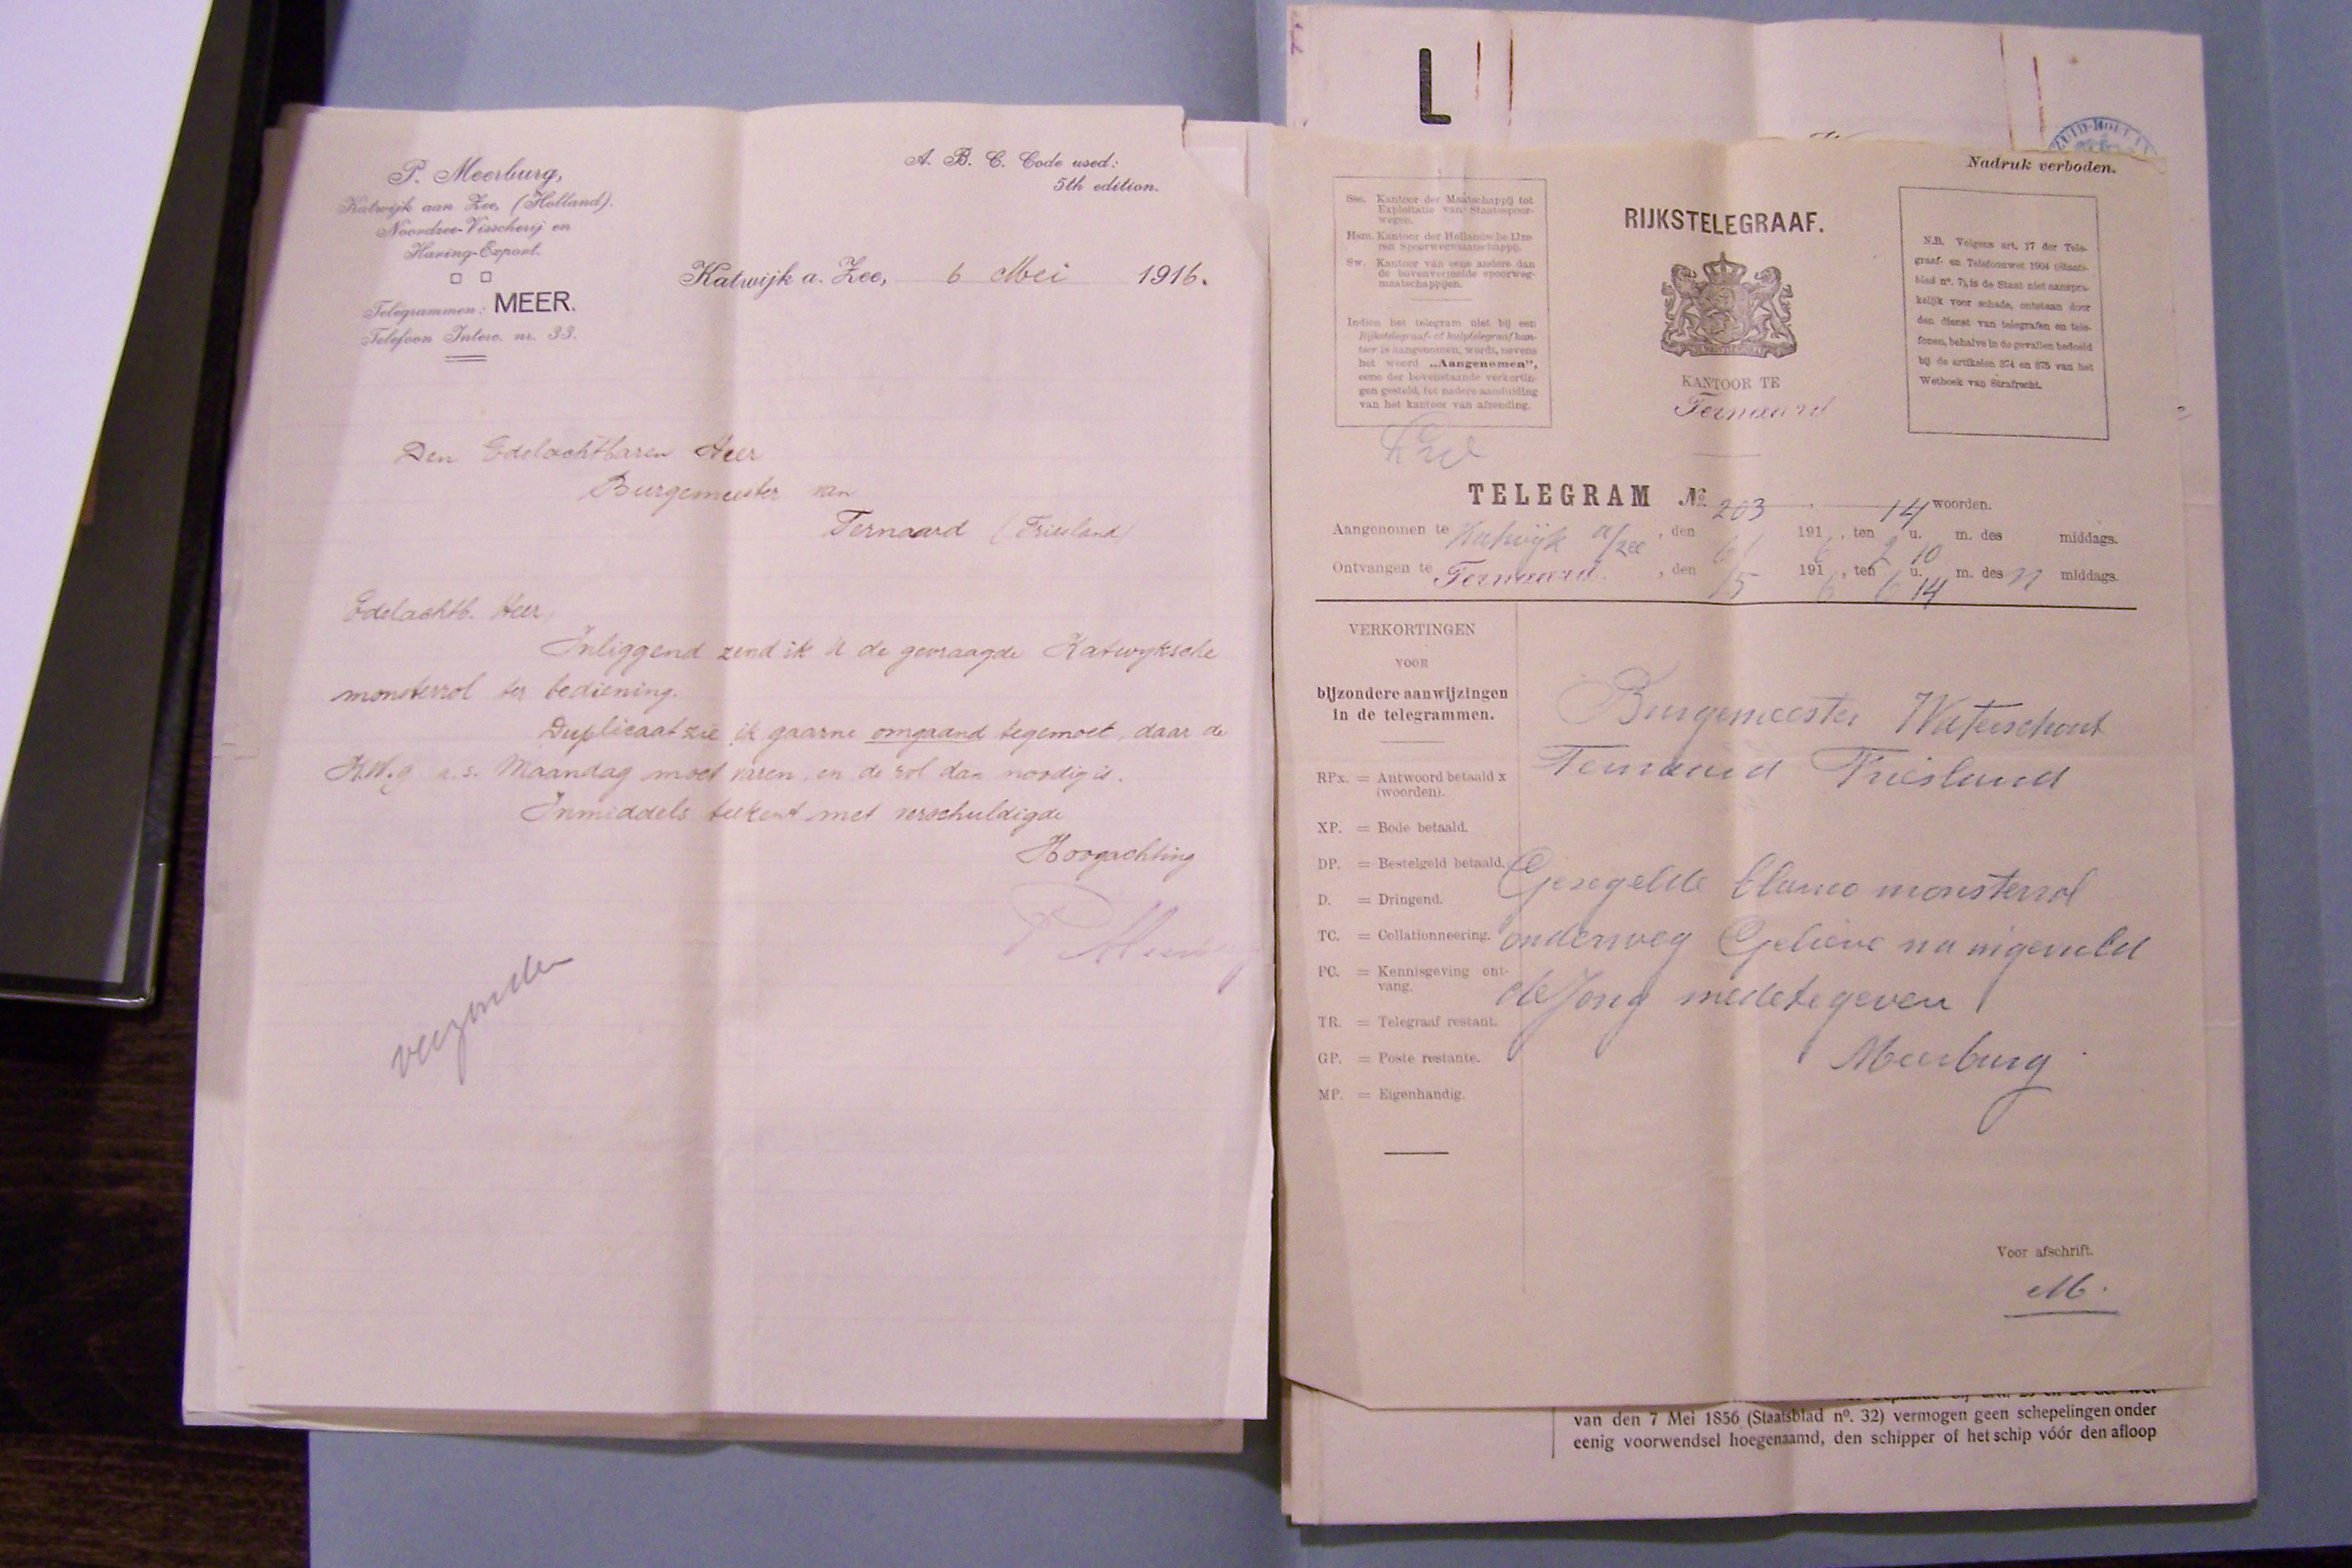 P. Meerburg,
Katwijk aan Zee, (Holland).
Noordzee-Visscherij en
Haring-Export.
Telegrammen: MEER.
Telefoon Interc. nr. 33.
A. B. C. Code used:
5th edition.
Katwijk a. Zee, 6 Mei 1916.
Den Edelachtbaren Heer
Burgemeester van
Ternaard (Friesland)
Edelachtb. Heer,
Inliggend zend ik U de gevraagde Katwyksche
monsterrol ter bediening.
Duplicaat zie ik gaarne omgaand tegemoet, daar de
a.s. Maandag moet varen, en de rol dan noodig is.
Inmiddels teekent met verschuldigde
Hoogachting
P Meerburg
verzonden
L
Nadruk verboden.
Sss. Kantoor der Maatschappij tot
Exploitatie van Staatsspoor-
wegen.
Hsm. Kantoor der Hollandsche IJze-
ren Spoorwegmaatschappij.
Sw. Kantoor van eene andere dan
de bovenvermelde spoorweg-
maatschappijen.
Indien het telegram niet bij een
Rijkstelegraaf- of hulptelegraafkan-
toor is aangenomen, wordt, nevens
het woord „Aangenomen",
eene der bovenstaande verkortin-
gen gesteld, tot nadere aanduiding
van het kantoor van afzending.
RIJKSTELEGRAAF.
KANTOOR TE
Ternaard
N.B. Volgens art. 17 der Tele-
graaf- en Telefoonwet 1904 (Staats-
blad nº. 7), is de Staat niet aanspra-
kelijk voor schade, ontstaan door
den dienst van telegrafen en tele-
fonen, behalve in de gevallen bedoeld
bij de artikelen 374 en 375 van het
Wetboek van Strafrecht.
TELEGRAM Nº. 203 14 woorden.
Aangenomen te Katwijk a/zee, den 6/ 191 6, ten 2 u. 10 m. des middags.
Ontvangen te Ternaard, den /5 191 6, ten 6 u. 14 m. des n middags.
VERKORTINGEN
VOOR
bijzondere aanwijzingen
in de telegrammen.
RPx. = Antwoord betaald x
(woorden).
XP. = Bode betaald.
DP. = Bestelgeld betaald.
D. = Dringend.
TC. = Collationneering.
PC. = Kennisgeving ont-
vang.
TR. = Telegraaf restant.
GP. = Poste restante.
MP. = Eigenhandig.
Burgemeester Waterschout
Ternaard Friesland
Gezegelde blanco monsterrol
onderweg Gelieve na
de Jong medetegeven
Meerburg
Voor afschrift.
M.
van den 7 Mei 1856 (Staatsblad nº. 32) vermogen geen schepelingen onder
eenig voorwendsel hoegenaamd, den schipper of het schip vóór den afloop